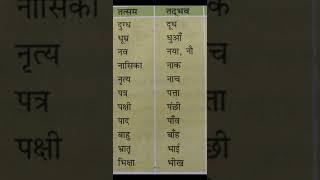 तत्सम तद्भव
दुग्ध दूध
धूम्र धुआँ
नव नया, नौ
नासिका नाक
नृत्य नाच
पत्र पत्ता
पक्षी पंछी
पाद पाँव
बाहु बाँह
भ्रातृ भाई
भिक्षा भीख